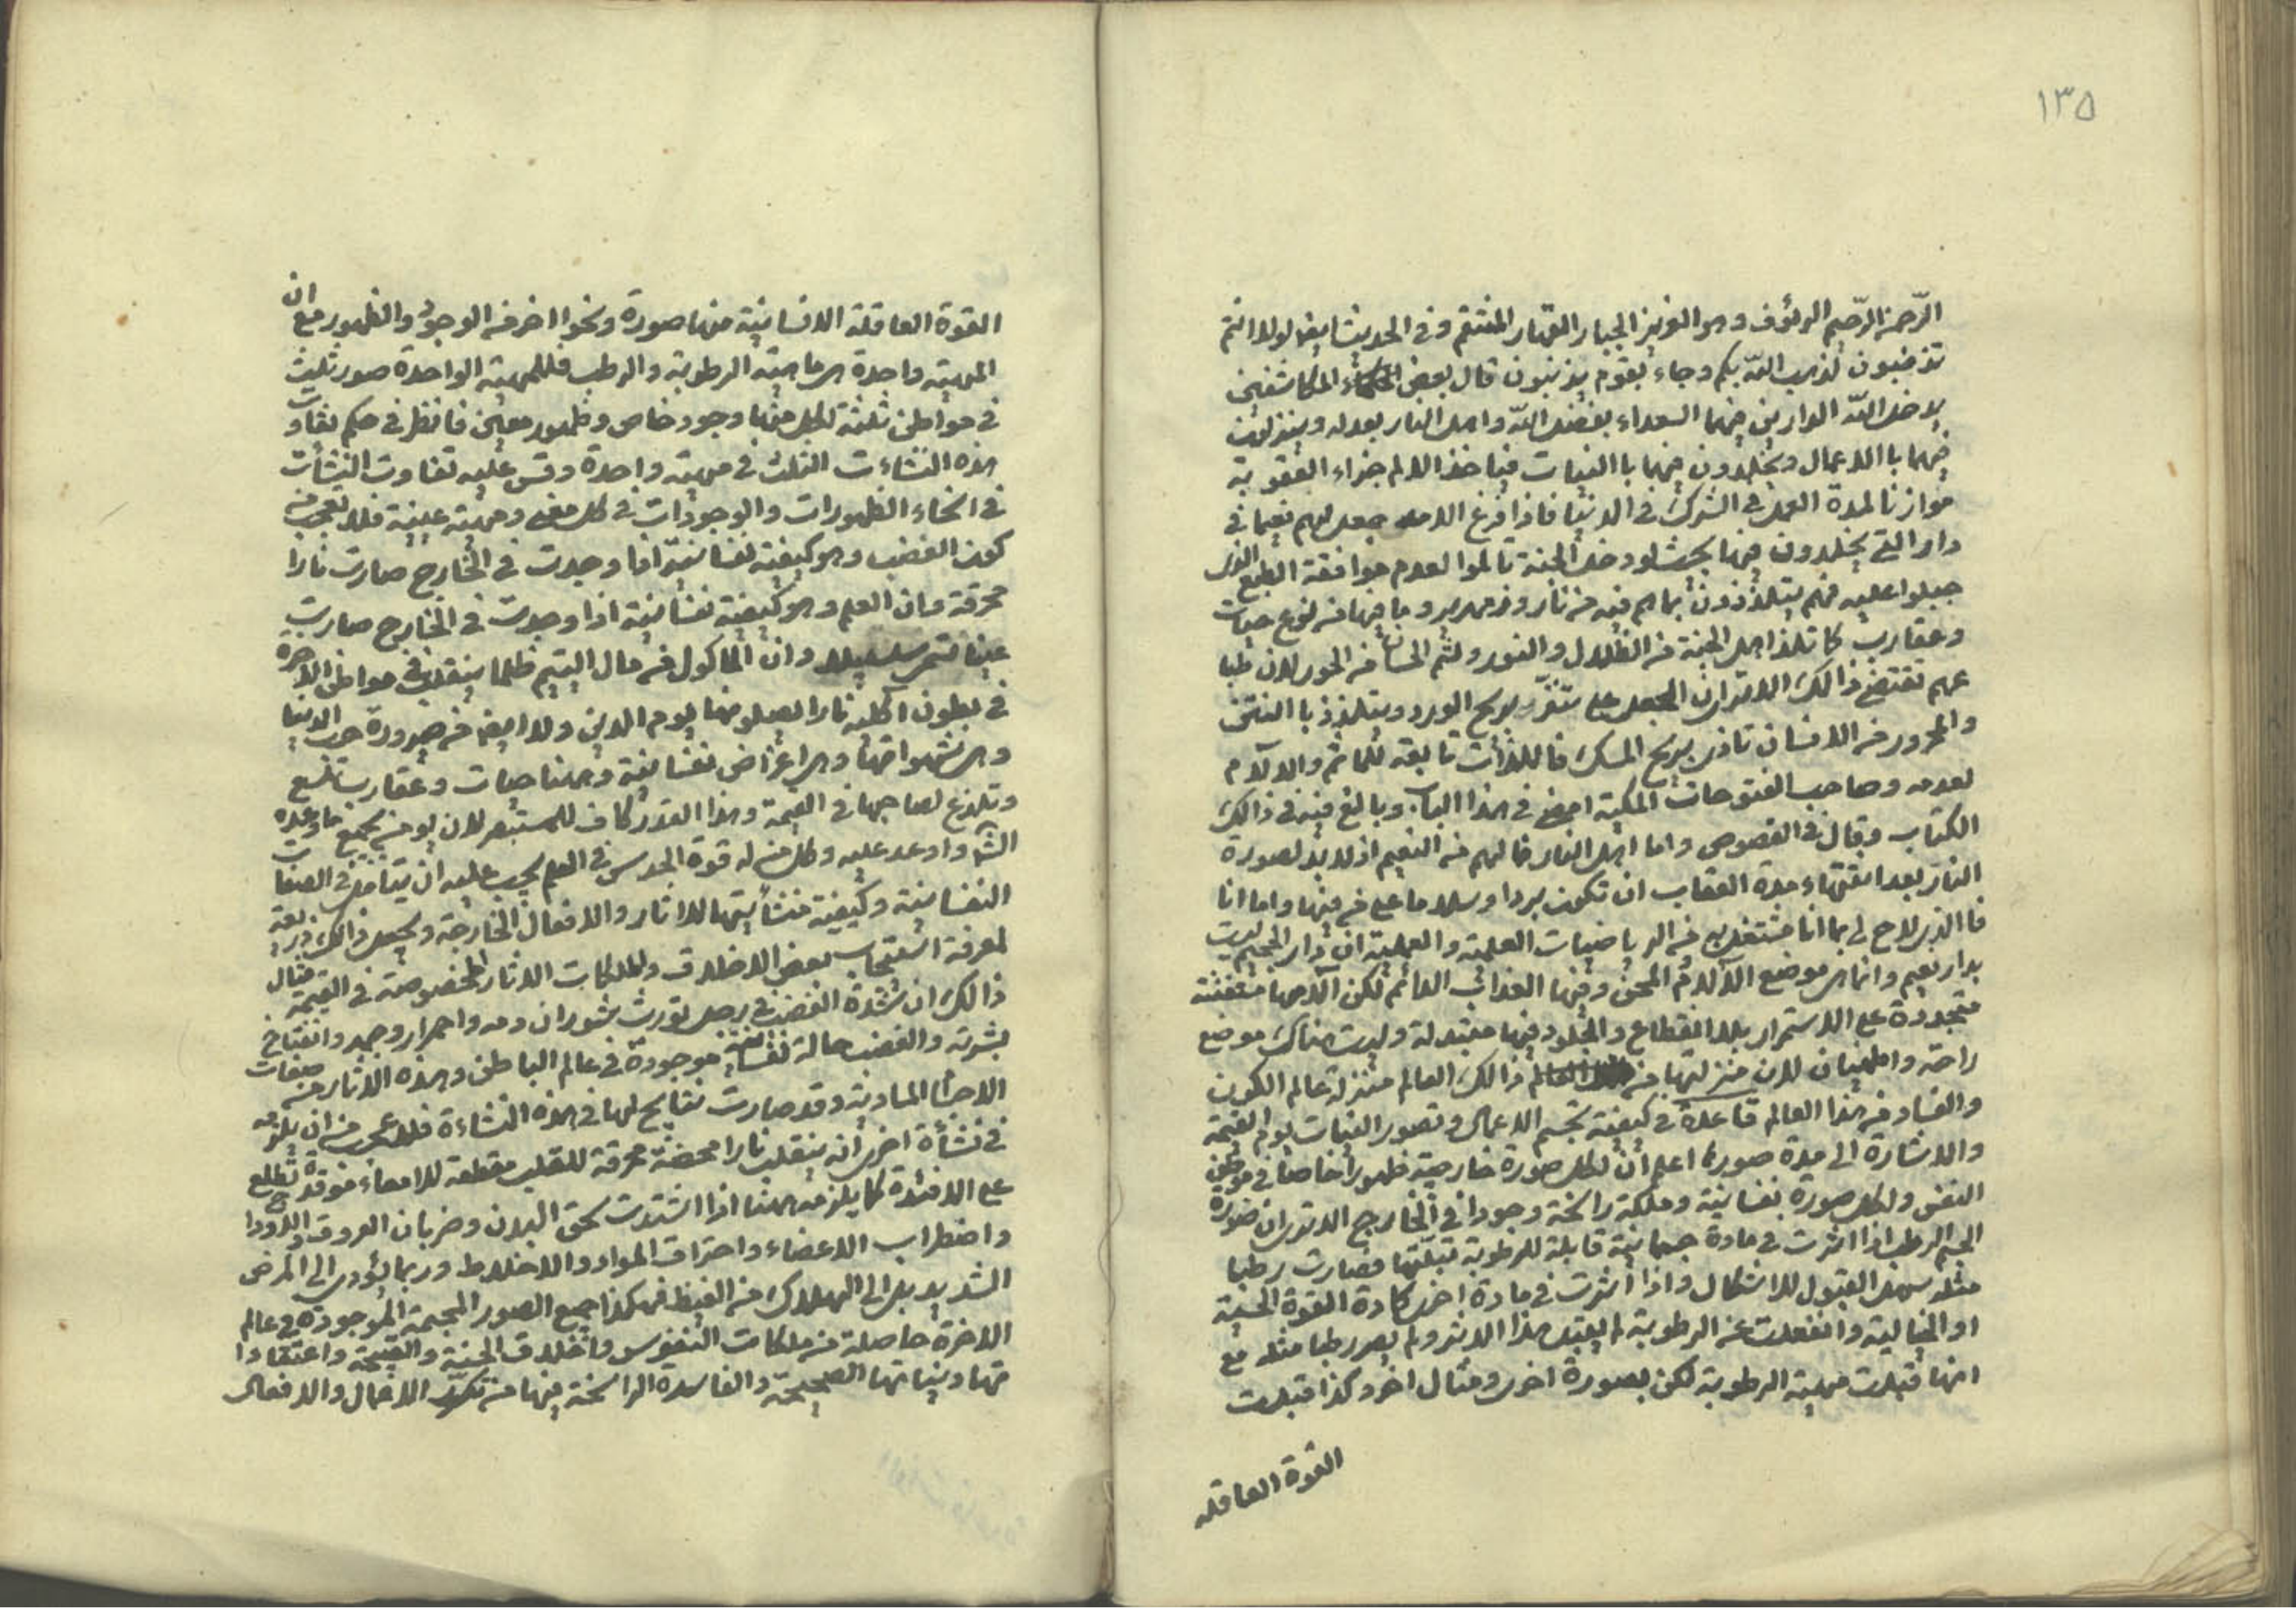 ١٣٥
الرّحمن الرّحيم الرئوف وهو العزيز الجبار القهار المنتقم وفى الحديث ايضا لولا انتم
تذنبون لذهب اللّه بكم وجاء بقوم يذنبون قال بعض المكاشفين
يدخل اللّه الدارين فيهما السعداء بفضل اللّه واهل النار بعدله وينزلون
فيهما باالاعمال ويخلدون فيهما باالنيات فياخذ الالم جزاء العقوبة
موازنا لمدة العمر فى الشرك فى الدنيا فاذا فرغ الامد جعل لهم نعيما فى
دار التى يخلدون فيها بحيث لو دخل الجنة تالموا لعدم موافقة الطبع الذى
جبلوا عليه فهم يتلذذون بما هم فيه من نار وزمهرير وما فيها من لدغ حيات
وعقارب كما تلذ اهل الجنة من الظلال والنور ولثم الحسان من الحور لان طبا
عهم تقتضى ذالك الاترى ان الجعل على يتضرر بريح الورد ويتلذذ باالنتن
والمحرور من الانسان تاذى بريح المسك فاللذات تابعة للملائم والآلام
لعدمه وصاحب الفتوحات المكية امعن فى هذا الباب وبالغ فيه فى ذالك
الكتاب وقال فى الفصوص واما اهل النار فمالهم من النعيم اذ لابد لصورة
النار بعد انتهاء مدة العقاب ان تكون بردا وسلاما على من فيها واما انا
فاالذى لاح لى بما انا مشتغل به من الرياضيات العلمية والعملية ان دار الجحيم ليست
بدار نعيم وانما هى موضع الآلام المحن وفيها العذاب الدائم لكن آلامها متفننة
متجددة على الاستمرار بلا انقطاع والجلود فيها متبدلة وليست هناك موضع
راحة واطمينان لان منزلتها من ذالك العالم منزلة عالم الكون
والفساد من هذا العالم قاعدة فى كيفية تجسم الاعمال وتصور النيات يوم القيمة
والاشارة الى مدة صورها اعلم ان لكل صورة خارجية ظهورا خاصا فى موطن
النفس ولكل صورة نفسانية وملكة راسخة وجودا فى الخارج الاترى ان صورة
الجسم الرطب اذا اثرت فى مادة جسمانية قابلة للرطوبة قبلتها فصارت رطبا
مثله سهل القبول للاشكال واذا اثرت فى مادة اخرى كمادة القوة الحسية
او الخيالية وانفعلت عن الرطوبة لم يقبل هذا الاثر ولم يصر رطبا مثله مع
انها قبلت مهية الرطوبة لكن بصورة اخرى ومثال اخر وكذا قبلت
القوة العاقله
القوة العاقلة الانسانية منها صورة ونحوا اخر من الوجود والظهور مع ان
المهية واحدة هى ماهية الرطوبة والرطب فللمهية الواحدة صور ثلث
فى مواطن ثلثة لكل منها وجود خاص وظهور معين فانظر فى حكم تفاوت
هذه النشاءت الثلث فى مهية واحدة وقس عليه تفاوت النشأت
فى انحاء الظهورات والوجودات فى كل معنى ومهية عينية فلا تعجب من
كون الغضب وهو كيفية نفسانية اذا وجدت فى الخارج صارت نارا
محرقة وان العلم وهو كيفية نفسانية اذا وجدت فى الخارج صارت
عينا تسمى سلسبيلا وان الماكول من مال اليتيم ظلما ينقلب فى مواطن الاخرة
فى بطون آكليه نارا ايصلونها يوم الدين ولا ايضا من صيرورة حب الدنيا
وهى شهواتها وهى اعراض نفسانية وههنا حيات وعقارب تلسع
وتلدغ لصاحبها فى القيمة وهذا القدر كاف للمستبصر لان يومن بجميع ما وعده
الشارع واوعد عليه وكل من له قوة الحدس فى العلم يجب عليه ان يتامل فى الصفات
النفسانية وكيفية منشأيتها للاثار والافعال الخارجة ويجعل ذالك ذريعة
لمعرفة استيجاب بعض الاخلاق والملكات الاثار المخصوصة فى القيمة مثال
ذالك ان شدة الغضب فى رجل تورث ثوران دمه واحمرار وجهه وانتفاخ
بشرته والغضب حالة نفسانية موجودة فى عالم الباطن وهذه الاثار من صفات
الاجسام المادية وقد صارت نتايج لها فى هذه النشاءة فلا عجب من ان يلزمه
فى نشأة اخرى ان ينقلب نارا محضة محرقة للقلب مقطعة للامعاء موقدة تطلع
على الافئدة كما يلزمه ههنا اذا اشتدت سخن البدن وضربان العروق والاوداج
واضطراب الاعضاء واحتراق المواد والاخلاط وربما يؤدى الى المرض
الشديد بل الى الهلاك من الغيظ فهكذا جميع الصور المجسمة الموجودة فى عالم
الاخرة حاصلة من ملكات النفوس واخلاق الحسنة والقبيحة واعتقادا
تها ونياتها الصحيحة والفاسدة الراسخة فيها من تكرر الاعمال والافعال